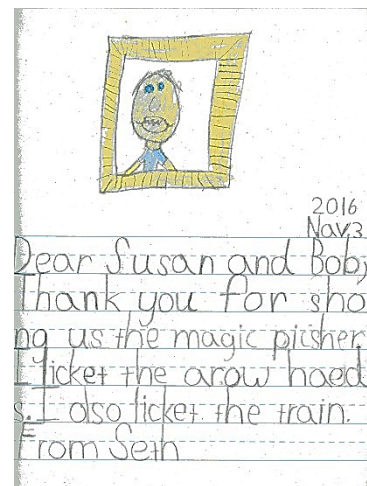 2016
Nov3
Dear Susan and Bob,
Thank you for sho
ng us the magic picsher.
I licket the arow haed
s. I olso licket the train.
From Seth